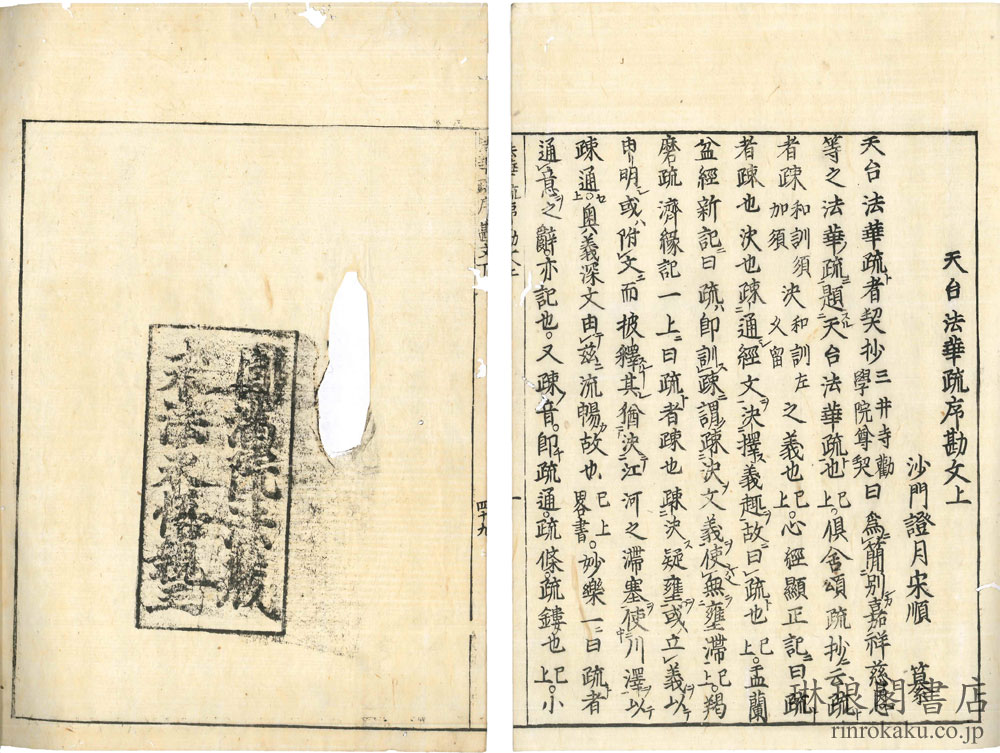 天台法華疏序勘文上
沙門證月宋順 纂
天台法華疏者契抄三井寺勸學院尊契曰為簡別嘉祥慈恩
等之法華疏題天台法華疏也已上俱舍頌疏抄云疏
者疎和訓須加須決和訓左义留之義也已上心經顯正記曰疏
者疎也決也疎通經文決擇義趣故曰疏也已上盂蘭
盆經新記曰疏即訓疎謂疎決文義使無壅滯已上羯
磨疏濟緣記一上曰疏者疎也疎決疑壅或立義以
申明或附文而披釋其猶決江河之滯塞使川澤以
疎通奧義深文由茲流暢故也已上畧書妙樂一曰疏者
通意之辭亦記也又疎音即疏通疏條疏鏤也已上小
圓滿院
四十九
琳琅閣書店
rinrokaku.co.jp